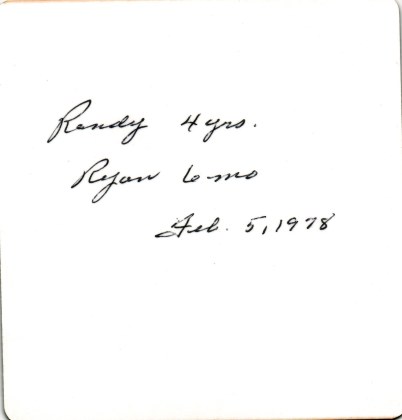 Randy 4 yrs.
Ryan 6 mo
Feb. 5, 1978